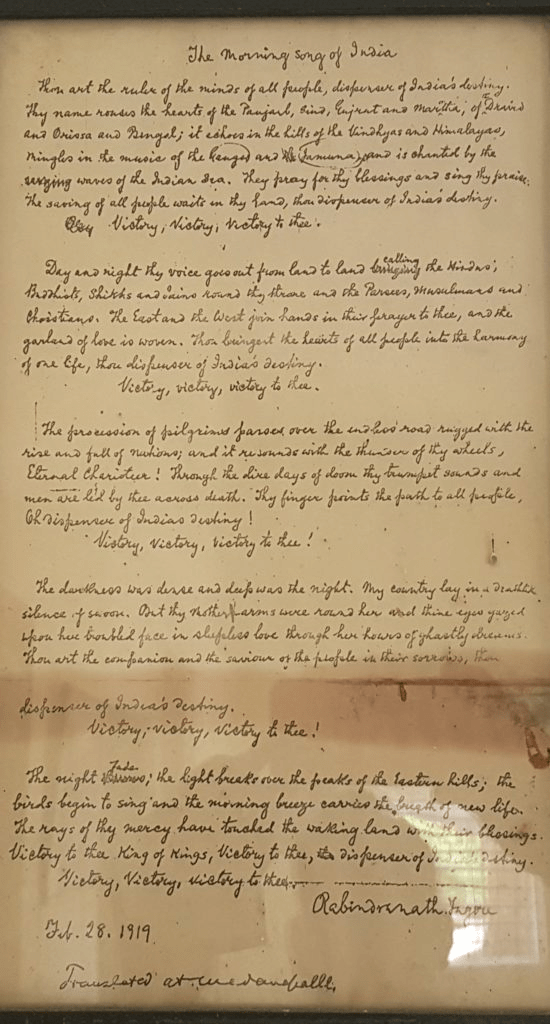 The Morning song of India
Thou art the ruler of the minds of all people, dispenser of India's destiny.
Thy name rouses the hearts of the Panjaub, Sind, Gujrat and Maratha, of Dravid
and Orissa and Bengal; it echoes in the hills of the Vindhyas and Himalayas,
mingles in the music of the Ganges and Jamuna, and is chanted by the
waves of the Indian Sea. They pray for thy blessings and sing thy praise.
The saving of all people waits in thy hand, thou dispenser of India's destiny.
Victory, Victory, Victory to thee.
Day and night thy voice goes out from land to land calling the Hindus,
Buddhists, Shikhs and Jains round thy throne and the Parsees, Musulmans and
Christians. The East and the West join hands in their prayer to thee, and the
garland of love is woven. Thou bringest the hearts of all people into the harmony
of one life, thou dispenser of India's destiny.
Victory, victory, victory to thee.
The procession of pilgrims passes over the endless road rugged with the
rise and fall of nations; and it resounds with the thunder of thy wheels,
Eternal Charioteer! Through the dire days of doom thy trumpet sounds and
men are led by thee across death. Thy finger points the path to all people,
Oh dispenser of Indias destiny!
Victory, Victory, Victory to thee!
The darkness was dense and deep was the night. My country lay in a deathlike
silence of swoon. But thy mother arms were round her and thine eyes gazed
upon her troubled face in sleepless love through her hours of ghastly dreams.
Thou art the companion and the saviour of the people in their sorrows, thou
dispenser of India's destiny.
Victory, Victory, Victory to thee!
The night fades; the light breaks over the peaks of the Eastern hills; the
birds begin to sing and the morning breeze carries the breath of new life.
The rays of thy mercy have touched the waking land with their blessings.
Victory to thee King of Kings, Victory to thee, dispenser of India's destiny.
Victory, Victory, Victory to thee.
Rabindranath Tagore
Feb. 28. 1919
Translated at Madanapalle.